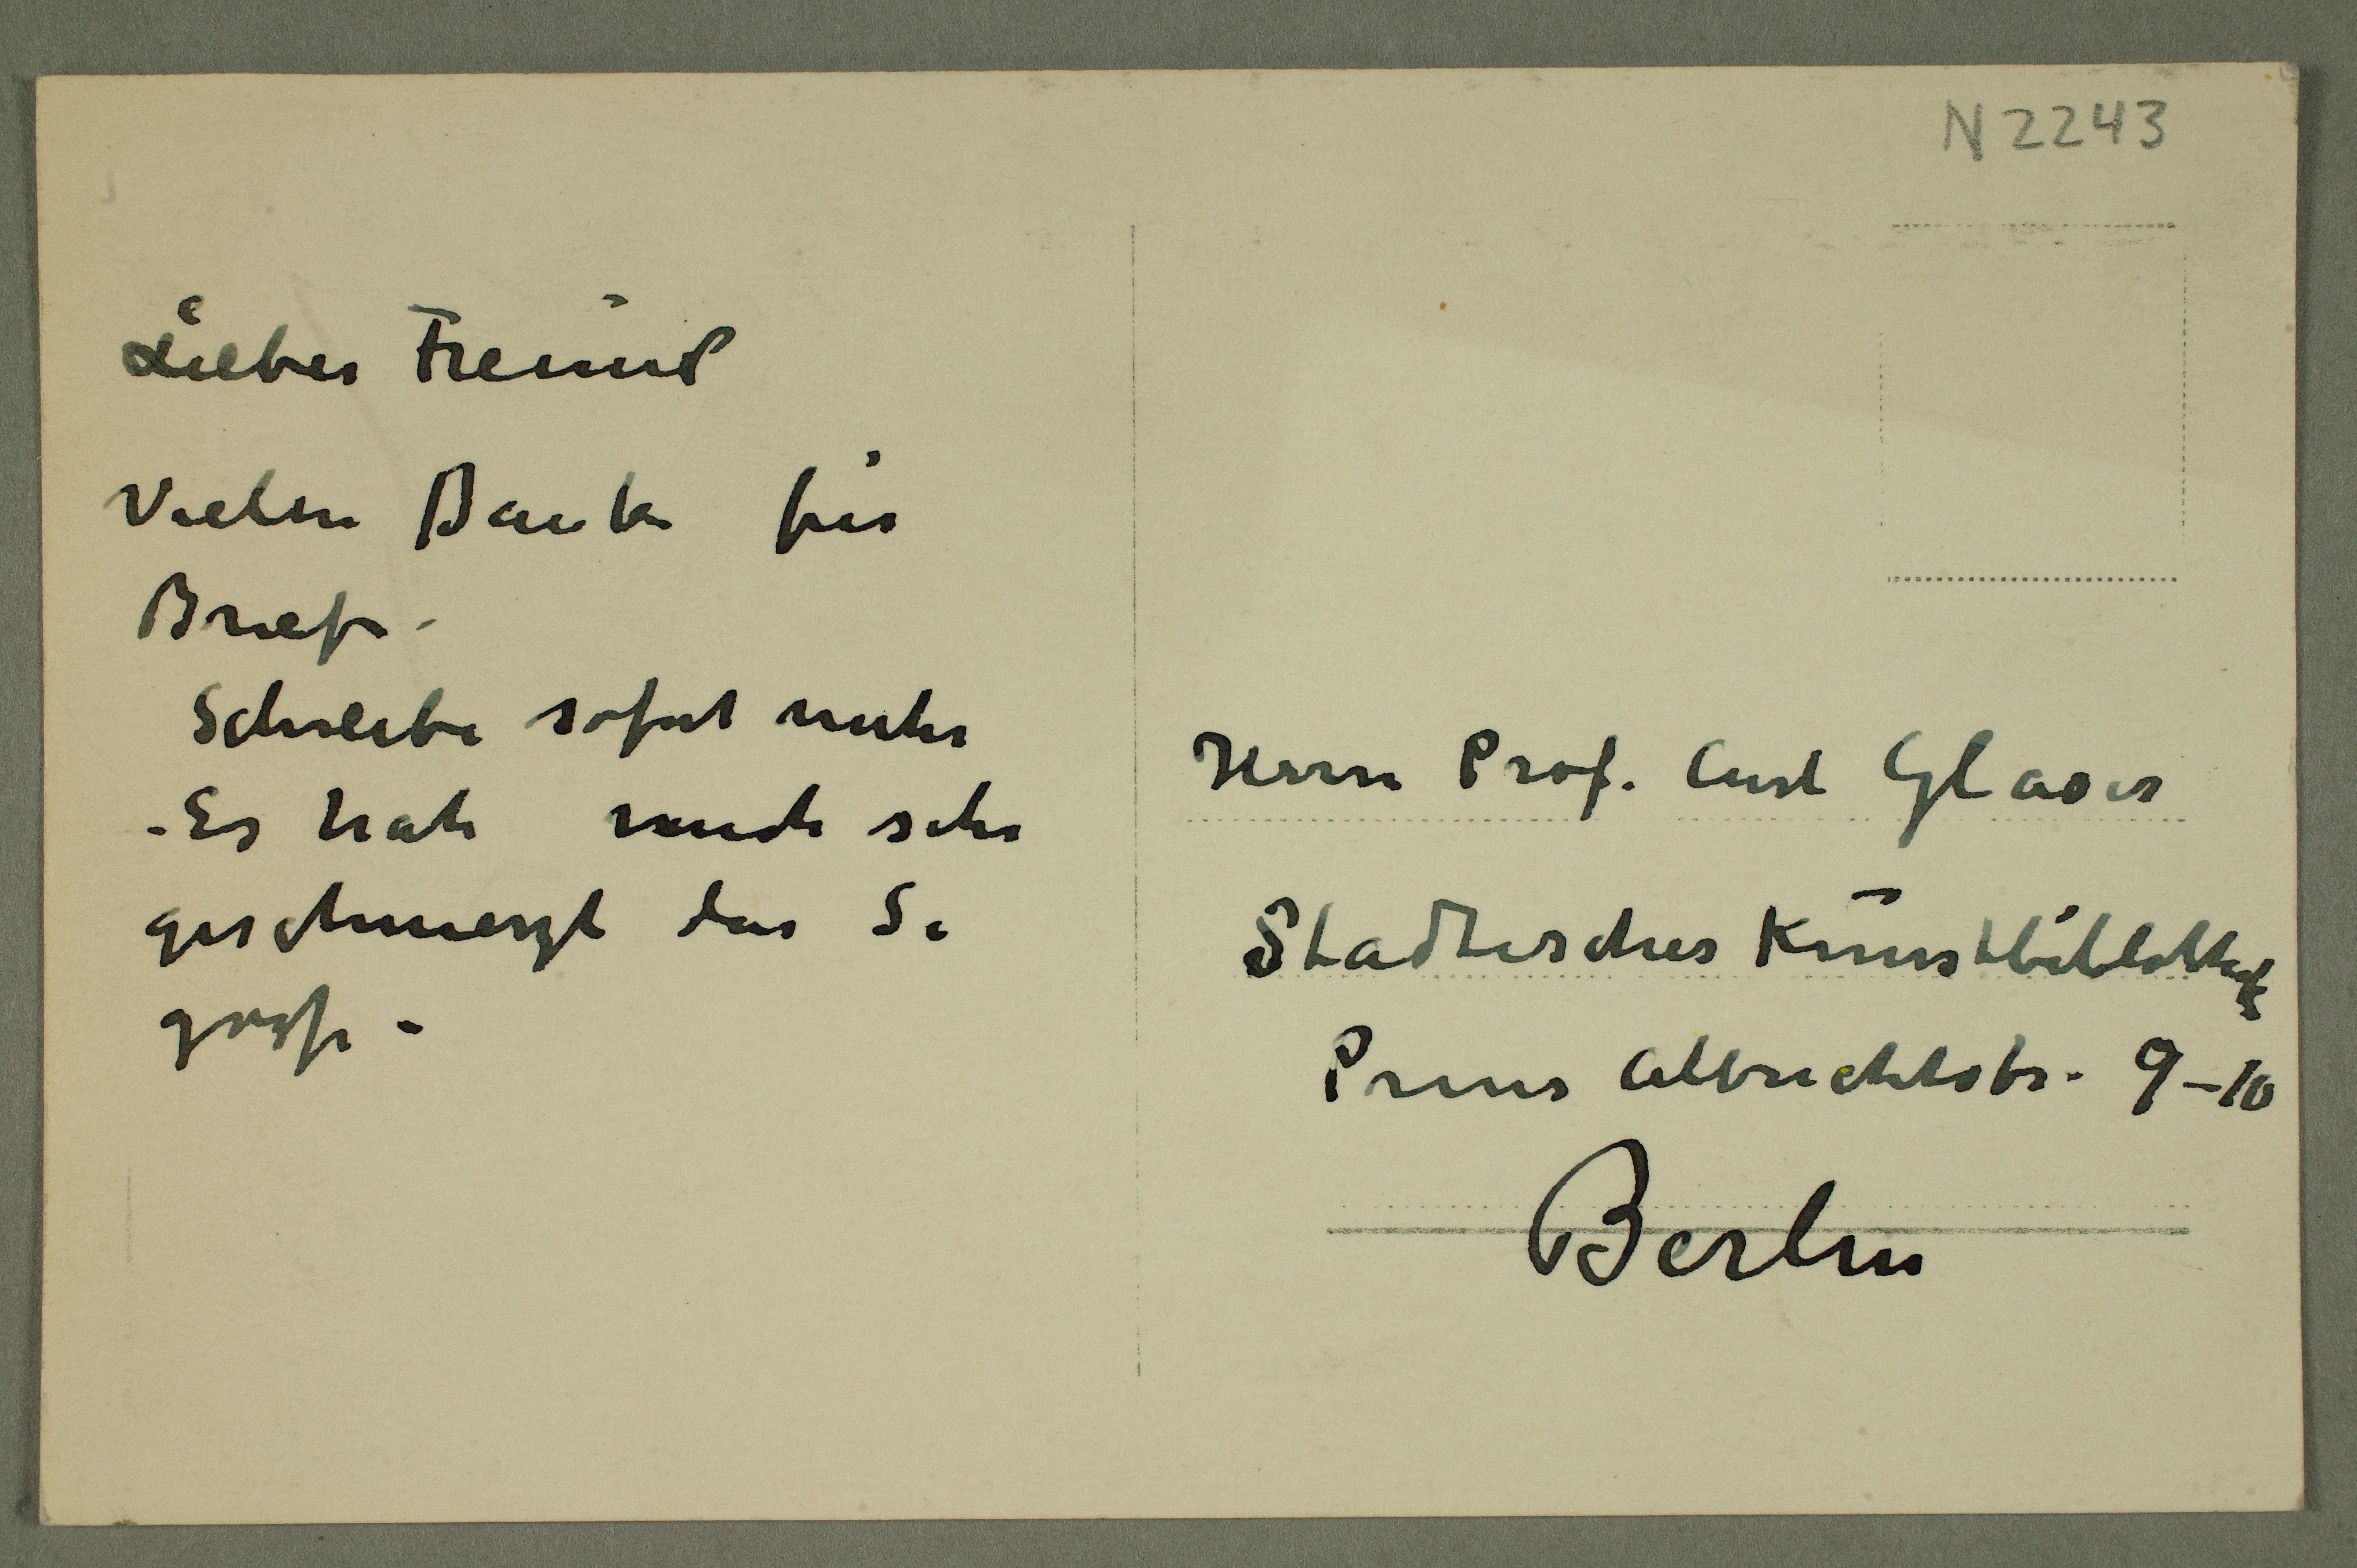 N 2243
Lieber Freund
Vielen Dank für
Brief.
Schreibe sofort mehr
- Es hat mich sehr
geschmerzt das Si
Herrn Prof. Curt Glaser
Stadtisches Kunstbibliothek
Prins Albrechtstr. 9-10
Berlin